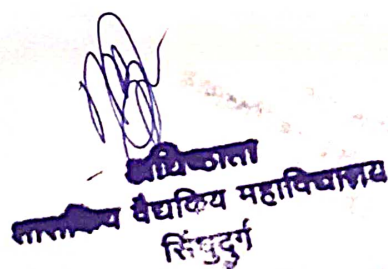 अधिष्ठाता
शासकिय वैद्यकिय महाविद्यालय
सिंधुदुर्ग